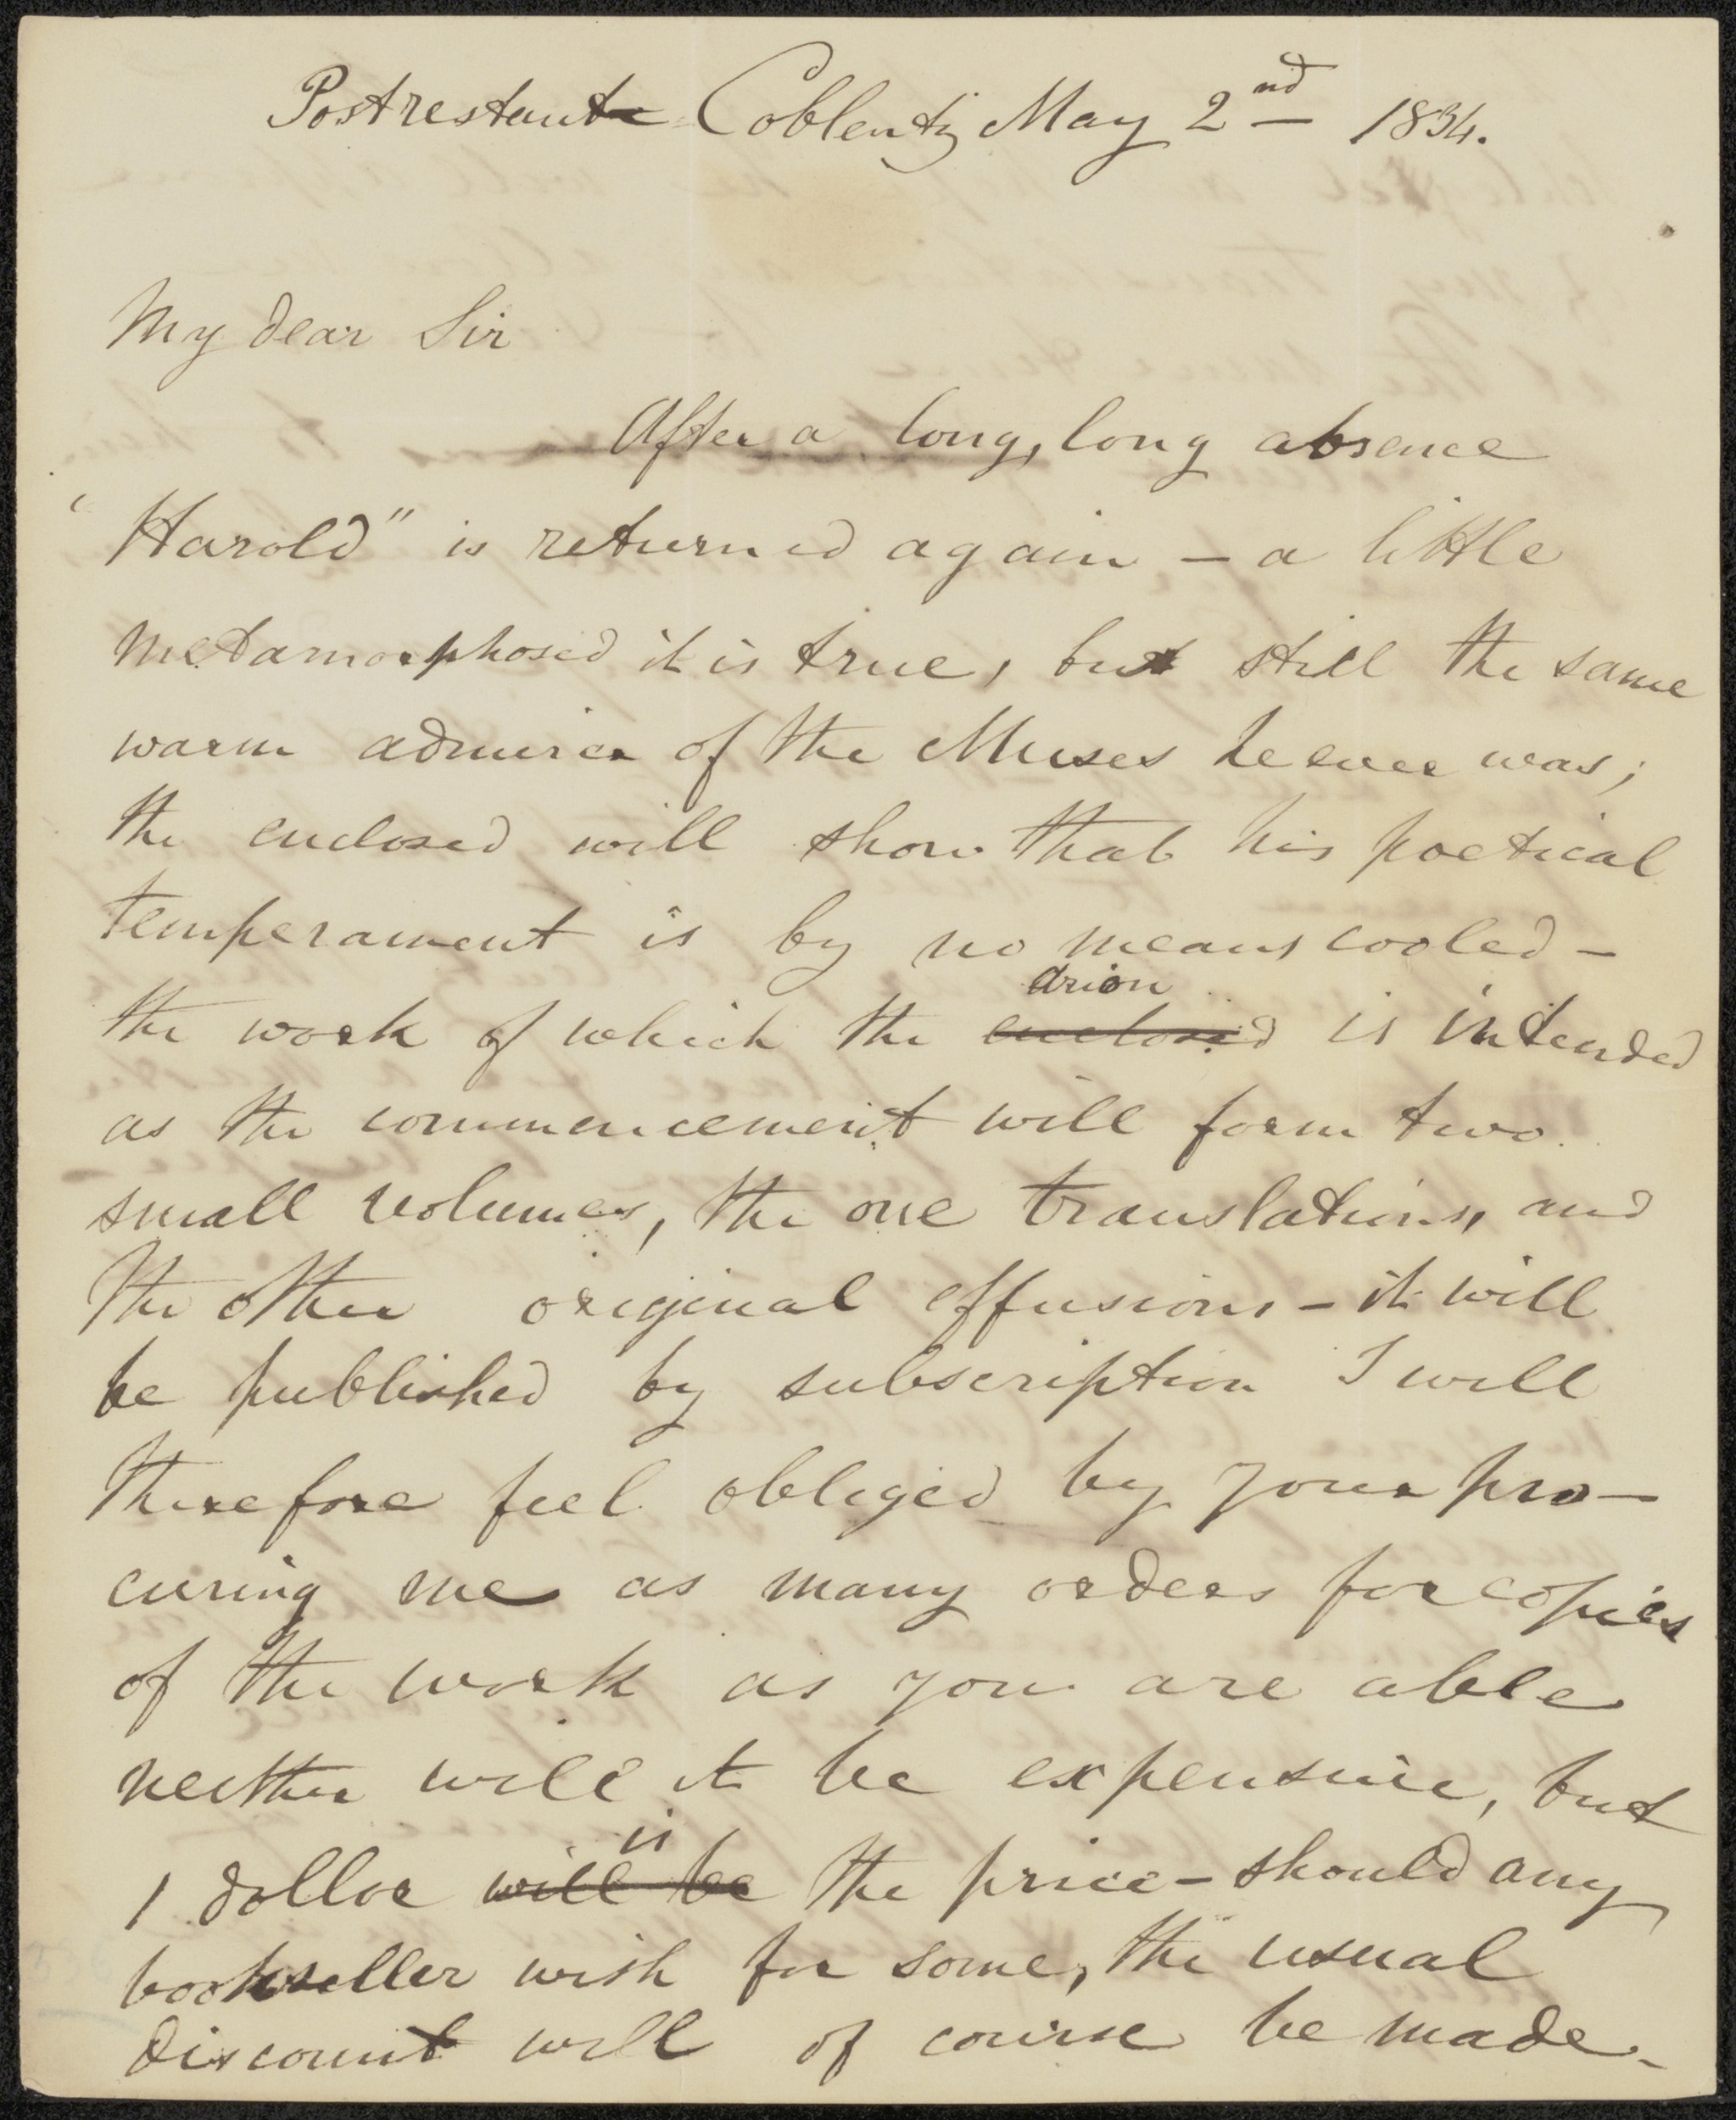 Postrestante Coblentz May 2nd 1834.
My dear Sir
After a long, long absence
"Harold" is returned again – a little
metamorphosed it is true, but still the same
warm admirer of the Muses he ever was;
the enclosed will show that his poetical
temperament is by no means cooled –
arion
the work of which the enclosed is intended
as the commencement will form two
small volumes, the one translations, and
the other original effusions – it will
be published by subscription I will
therefore feel obliged by your pro-
curing me as many orders for copies
of the work as you are able
neither will it be expensive, but
is
1 dollar will be the price – should any
bookseller wish for some, the usual
discount will of course be made –